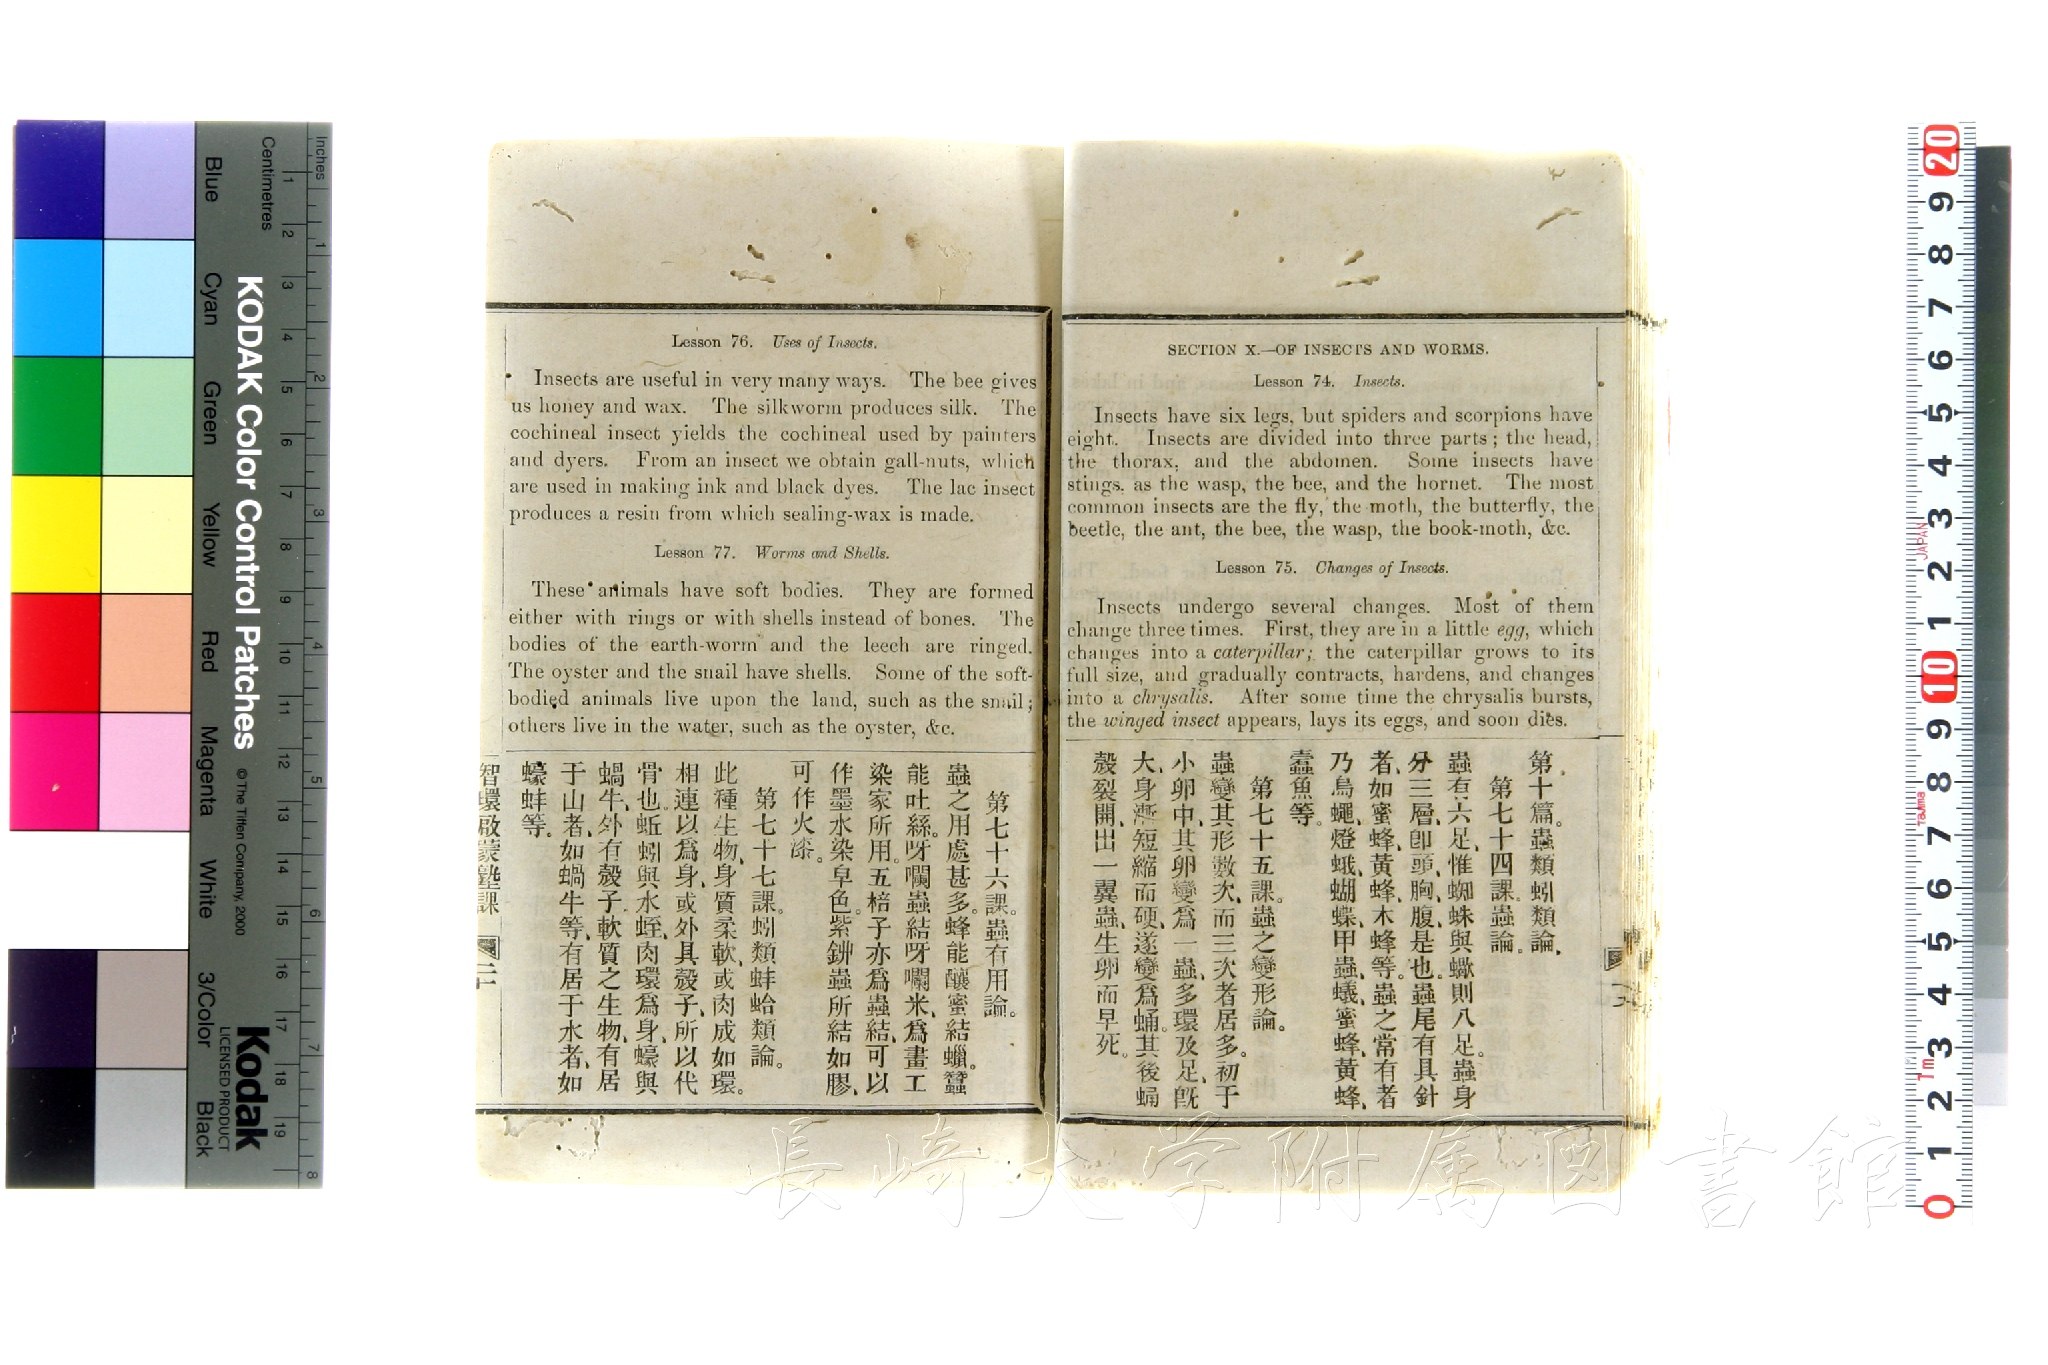 SECTION X.—OF INSECTS AND WORMS.
Lesson 74. Insects.
Insects have six legs, but spiders and scorpions have
eight. Insects are divided into three parts; the head,
the thorax, and the abdomen. Some insects have
stings. as the wasp, the bee, and the hornet. The most
common insects are the fly, the moth, the butterfly, the
beetle, the ant, the bee, the wasp, the book-moth, &c.
Lesson 75. Changes of Insects.
Insects undergo several changes. Most of them
change three times. First, they are in a little egg, which
changes into a caterpillar; the caterpillar grows to its
full size, and gradually contracts, hardens, and changes
into a chrysalis. After some time the chrysalis bursts,
the winged insect appears, lays its eggs, and soon dies.
第十篇。蟲類蚓類論、
第七十四課。蟲論。
蟲有六足、惟蜘蛛與蠍則八足。蟲身
分三層、卽頭、胸、腹、是也。蟲尾有具針
者、如蜜蜂、黃蜂、木蜂等。蟲之常有者
乃烏蠅、燈蛾、蝴蝶、甲蟲、蟻、蜜蜂、黃蜂、
蠹魚等。
第七十五課。蟲之變形論。
蟲變其形數次、而三次者居多。初于
小卵中、其卵變爲一蟲、多環及足、旣
大、身漸短縮而硬、遂變爲蛹。其後蛹
殼裂開、出一翼蟲、生卵而早死。
Lesson 76. Uses of Insects.
Insects are useful in very many ways. The bee gives
us honey and wax. The silkworm produces silk. The
cochineal insect yields the cochineal used by painters
and dyers. From an insect we obtain gall-nuts, which
are used in making ink and black dyes. The lac insect
produces a resin from which sealing-wax is made.
Lesson 77. Worms and Shells.
These animals have soft bodies. They are formed
either with rings or with shells instead of bones. The
bodies of the earth-worm and the leech are ringed.
The oyster and the snail have shells. Some of the soft-
bodied animals live upon the land, such as the snail;
others live in the water, such as the oyster, &c.
第七十六課。蟲有用論。
蟲之用處甚多。蜂能釀蜜結蠟。蠶
能吐絲。呀囒蟲結呀囒米、爲畫工
染家所用。五棓子亦爲蟲結、可以
作墨水染皁色。紫鉚蟲所結如膠、
可作火漆。
第七十七課。蚓類蚌蛤類論。
此種生物、身質柔軟、或肉成如環。
相連以爲身、或外具殼子、所以代
骨也。蚯蚓與水蛭、肉環爲身、蠔與
蝸牛、外有殼子。軟質之生物、有居
于山者、如蝸牛等、有居于水者、如
蠔蚌等。
智環啟蒙塾課
KODAK Color Control Patches
© The Tiffen Company, 2000
Kodak
LICENSED PRODUCT
Inches
Centimetres
Blue
Cyan
Green
Yellow
Red
Magenta
White
3/Color
Black
1 2 3 4 5 6 7 8 9 10 11 12 13 14 15 16 17 18 19
1 2 3 4 5 6 7 8
20 9 8 7 6 5 4 3 2 1 10 9 8 7 6 5 4 3 2 1 0
JAPAN
1m
長崎大学附属図書館